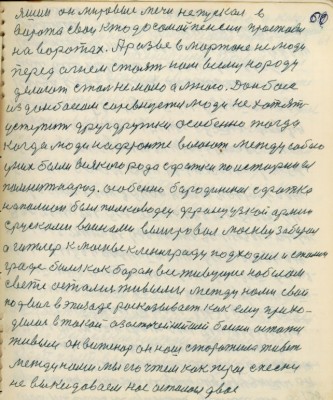 60
яшим он мировые мячи не пускал в
ворота свои кто до самой пенсии простоял
на воротах. А разве в мартене не люди
перед огнем стоят нам всему народу
делают стали немало а много. Донбасс
из донбассом соревнуется люди не хотят
уступить друг дружки особенно тогда
когда люди на фронте воюют между собою
у них были всякого рода схватки по истории
помнит народ. особенно бородинская схватка
наполион был полководец французкой армии
с рускими воинами выигровал москву забирал
а гитлер к москве к ленграду подходил и стали
граде были как баран все живущие на белом
свете остались живыми между нами свой
подвиг в эпизоде росказывает как ему прихо-
дилось в такой ожесточейшей бойни остатся
живым он вижонор он наш сторожила живет
между нами мы его чтем как героя с песни
не выкидоваем нас осталось двое